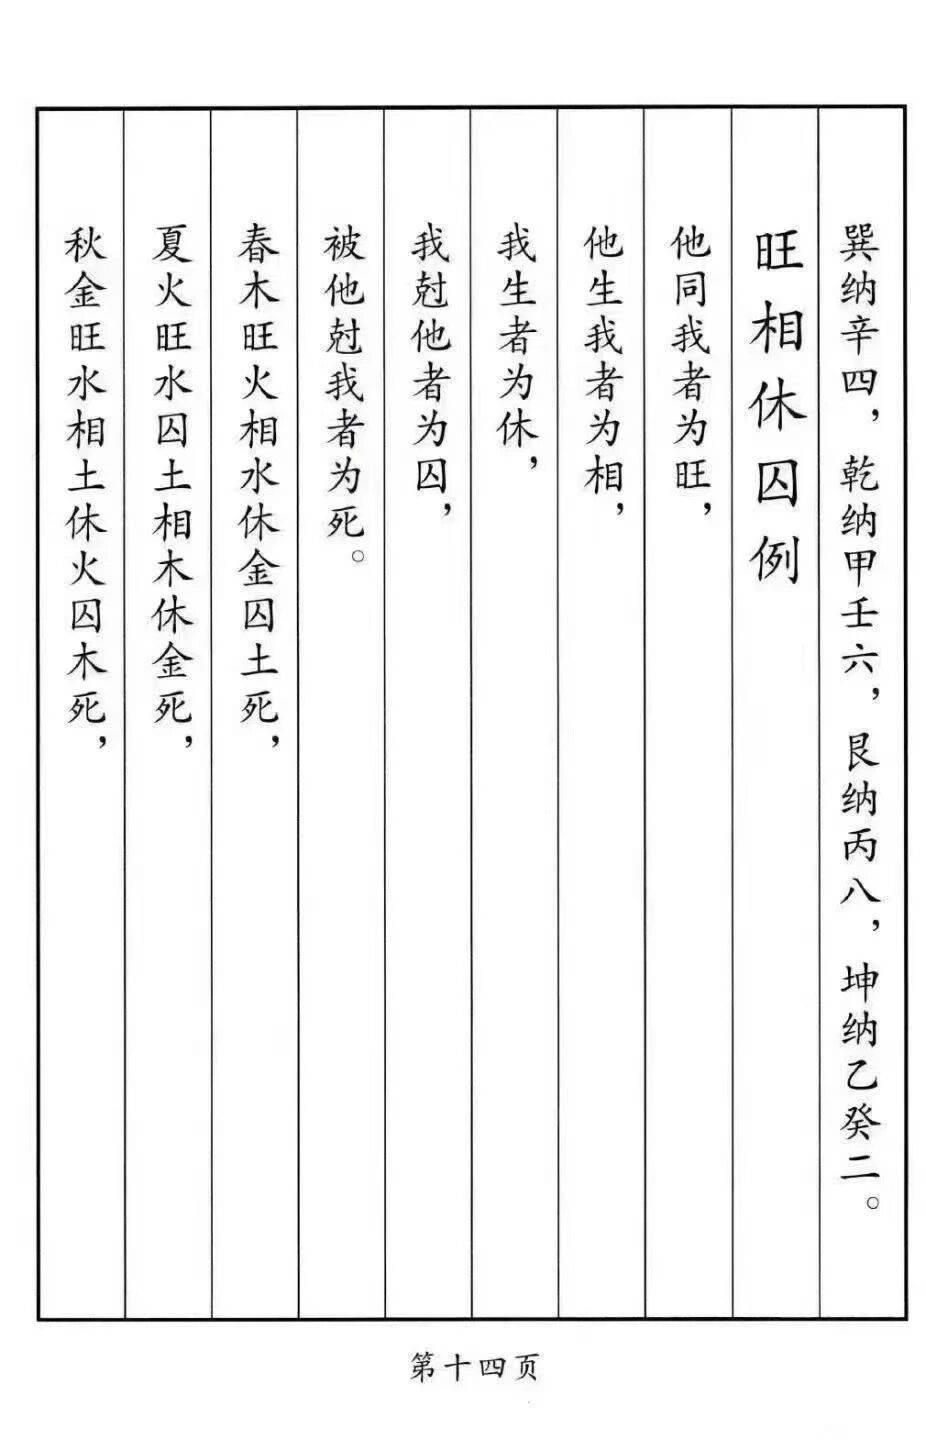 巽纳辛四，乾纳甲壬六，艮纳丙八，坤纳乙癸二。
旺相休囚例
他同我者为旺，
他生我者为相，
我生者为休，
我尅他者为囚，
被他尅我者为死。
春木旺火相水休金囚土死，
夏火旺水囚土相木休金死，
秋金旺水相土休火囚木死，
第十四页